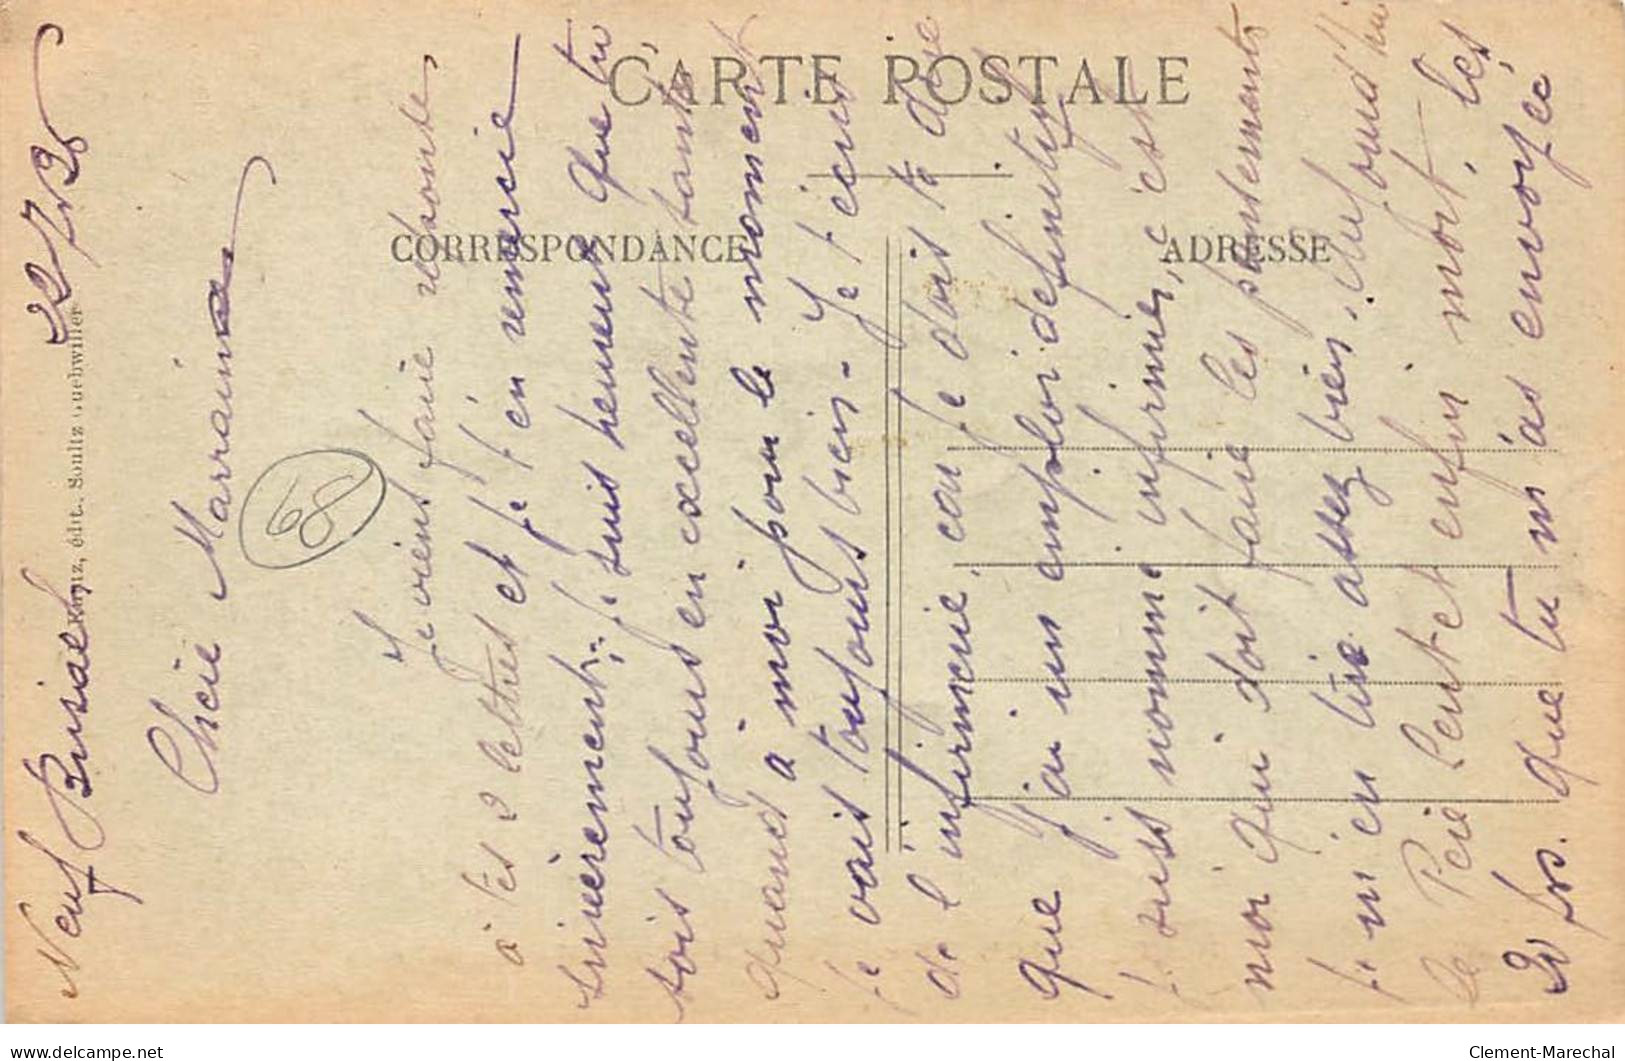 CARTE POSTALE
CORRESPONDANCE
ADRESSE
édit. Soultz Guebwiller
68
Neuf Brisach 22/7/36
Chère Marraine
Je vient faire réponse
à tes 2 lettres et je t'en remercie
sincèrement, je suis heureux que tu
sois toujours en excellente santé
quand à moi pour le moment
je vais toujours bien - Je t'écris
de l'infirmerie, car je dois te dire
que j'ai un emploi definitif
je suis nommé infirmier, c'est
moi qui doit faire les pansements
je m'en tire assez bien, Aujourd'hui
le Père est enfin mort, les
20 frs. que tu m'as envoyée
Clement-Marechal
delcampe.net